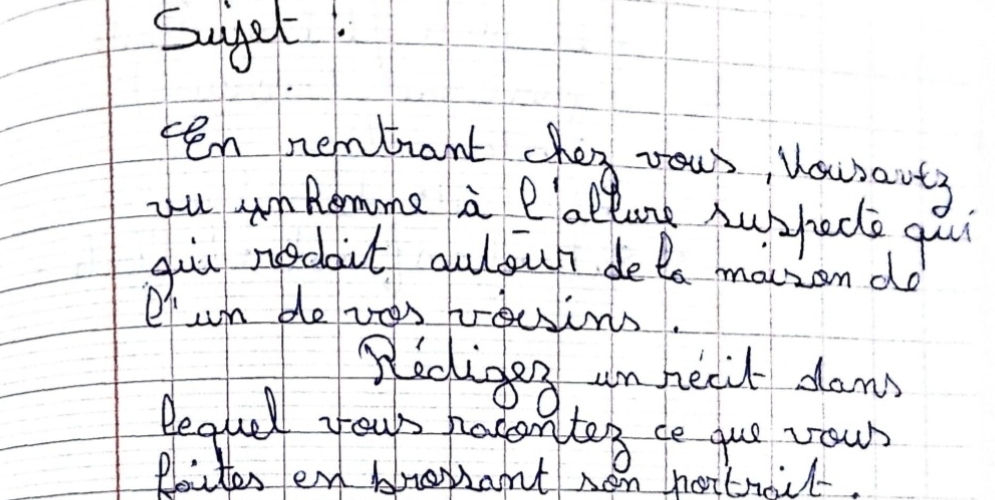 Sujet :
En rentrant chez vous, Vous avez
vu un homme à l'allure suspecte qui
qui rodait autour de la maison de
l'un de vos voisins.
Rédigez un récit dans
lequel vous racontez ce que vous
faites en brossant son portrait.